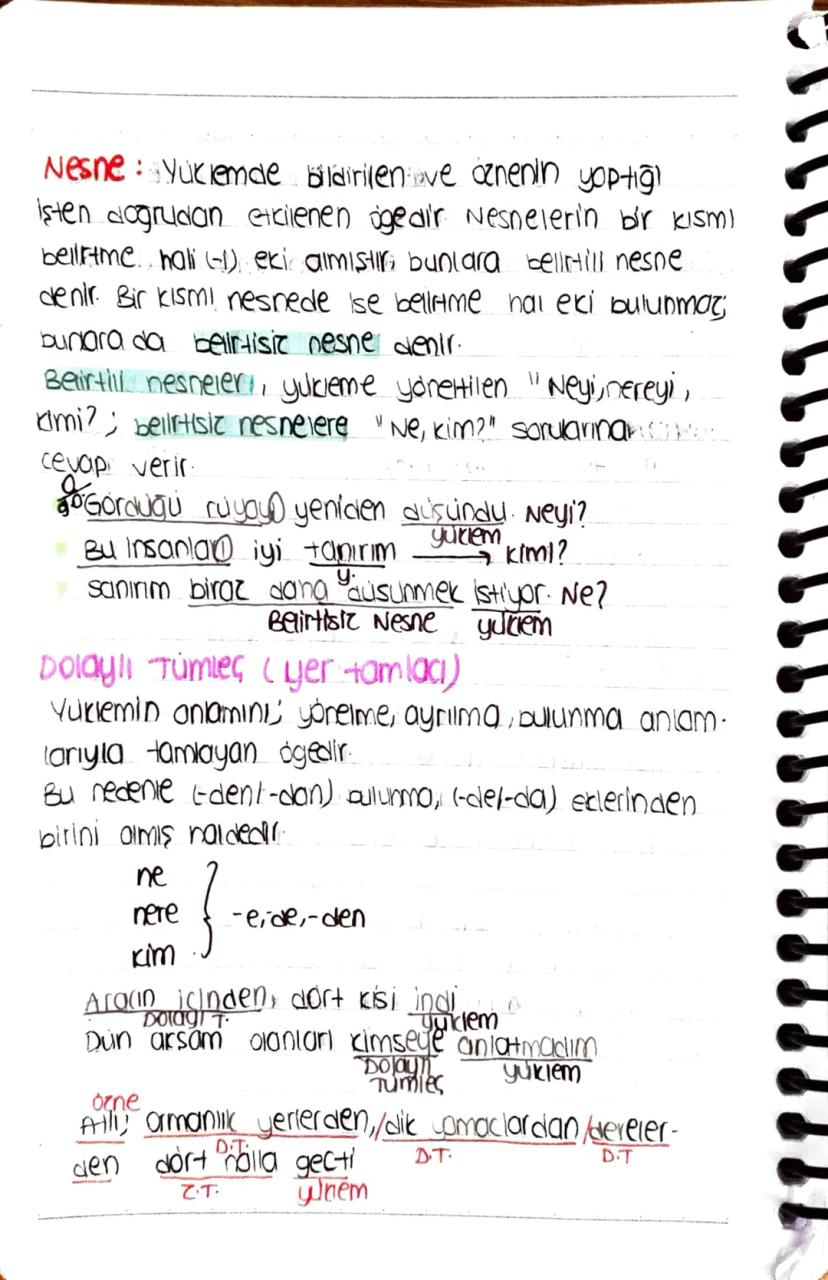 Nesne: Yüklemde bildirilen ve öznenin yaptığı
işten doğrudan etkilenen ögedir. Nesnelerin bir kısmı
belirtme hali (-i) eki almıştır; bunlara belirtili nesne
denir. Bir kısmı nesnede ise belirtme hal eki bulunmaz;
bunlara da belirtisiz nesne denir.
Belirtili nesneler, yükleme yöneltilen "Neyi, nereyi,
kimi?; belirtisiz nesnelere "Ne, kim?" sorularına
cevap verir.
Gördüğü rüyayı yeniden düşündu. Neyi?
yüklem
Bu insanları iyi tanırım → kimi?
y.
sanırım biraz daha düşünmek istiyor. Ne?
Belirtisiz Nesne yüklem
Dolaylı Tümleç (yer tamlacı)
Yüklemin anlamını; yönelme, ayrılma, bulunma anlam-
larıyla tamlayan ögedir.
Bu nedenle (-den/-dan) bulunma, (-de/-da) eklerinden
birini almış haldedir.
ne
nere } -e,-de,-den
kim
Aracın içinden, dört kişi indi
Dolaylı T. yüklem
Dün akşam olanları kimseye anlatmadım
Dolaylı yüklem
Tümleç
özne
Atlı; ormanlık yerlerden,/dik yamaçlardan/dereler-
D.T. D.T. D.T
den dört nalla geçti
Z.T. yüklem